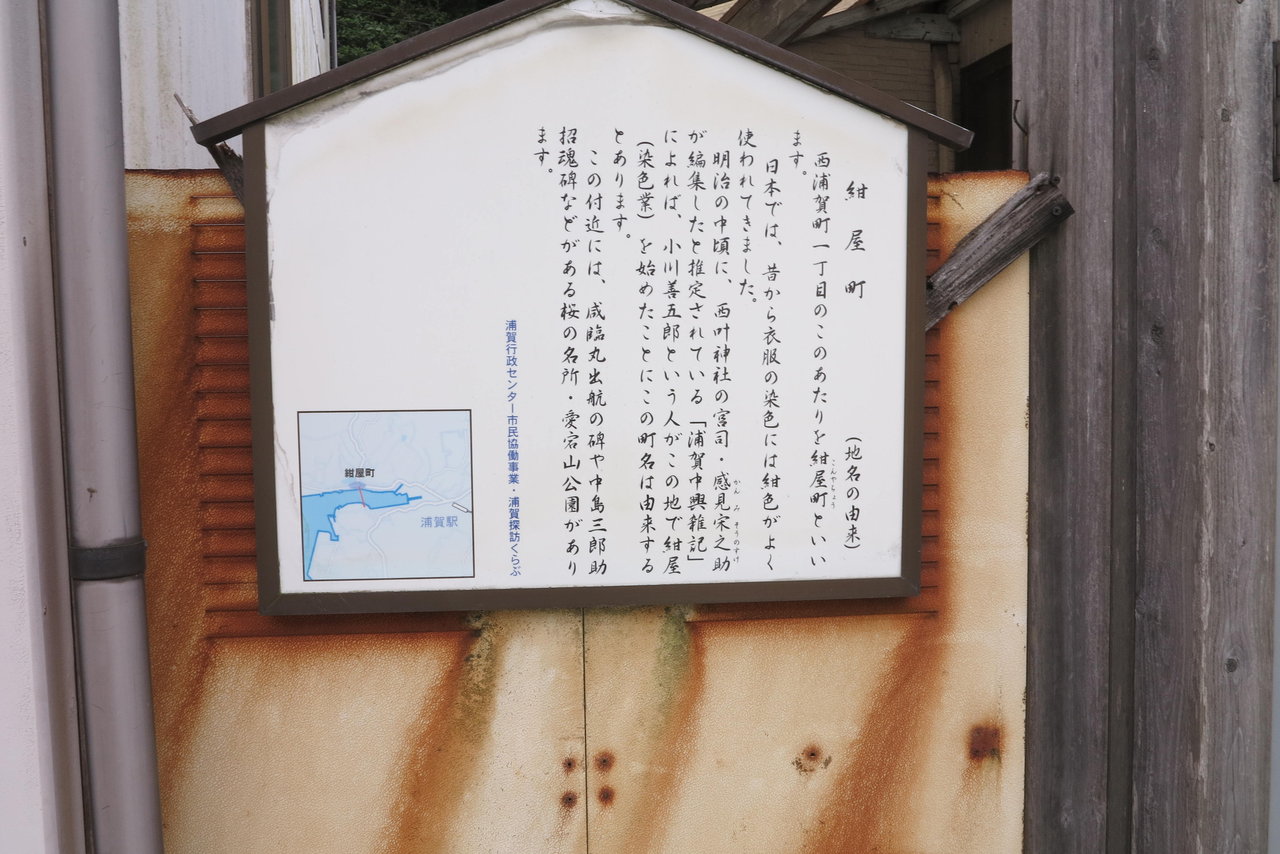 紺屋町
(地名の由来)
西浦賀町一丁目のこのあたりを紺屋町といい
こんやちょう
ます。
日本では、昔から衣服の染色には紺色がよく
使われてきました。
明治の中頃に、西叶神社の宮司・感見宋之助
かんみそうのすけ
が編集したと推定されている「浦賀中興雑記」
によれば、小川善五郎という人がこの地で紺屋
(染色業)を始めたことにこの町名は由来する
とあります。
この付近には、咸臨丸出航の碑や中島三郎助
招魂碑などがある桜の名所・愛宕山公園があり
ます。
浦賀行政センター市民協働事業・浦賀探訪くらぶ
紺屋町
浦賀駅